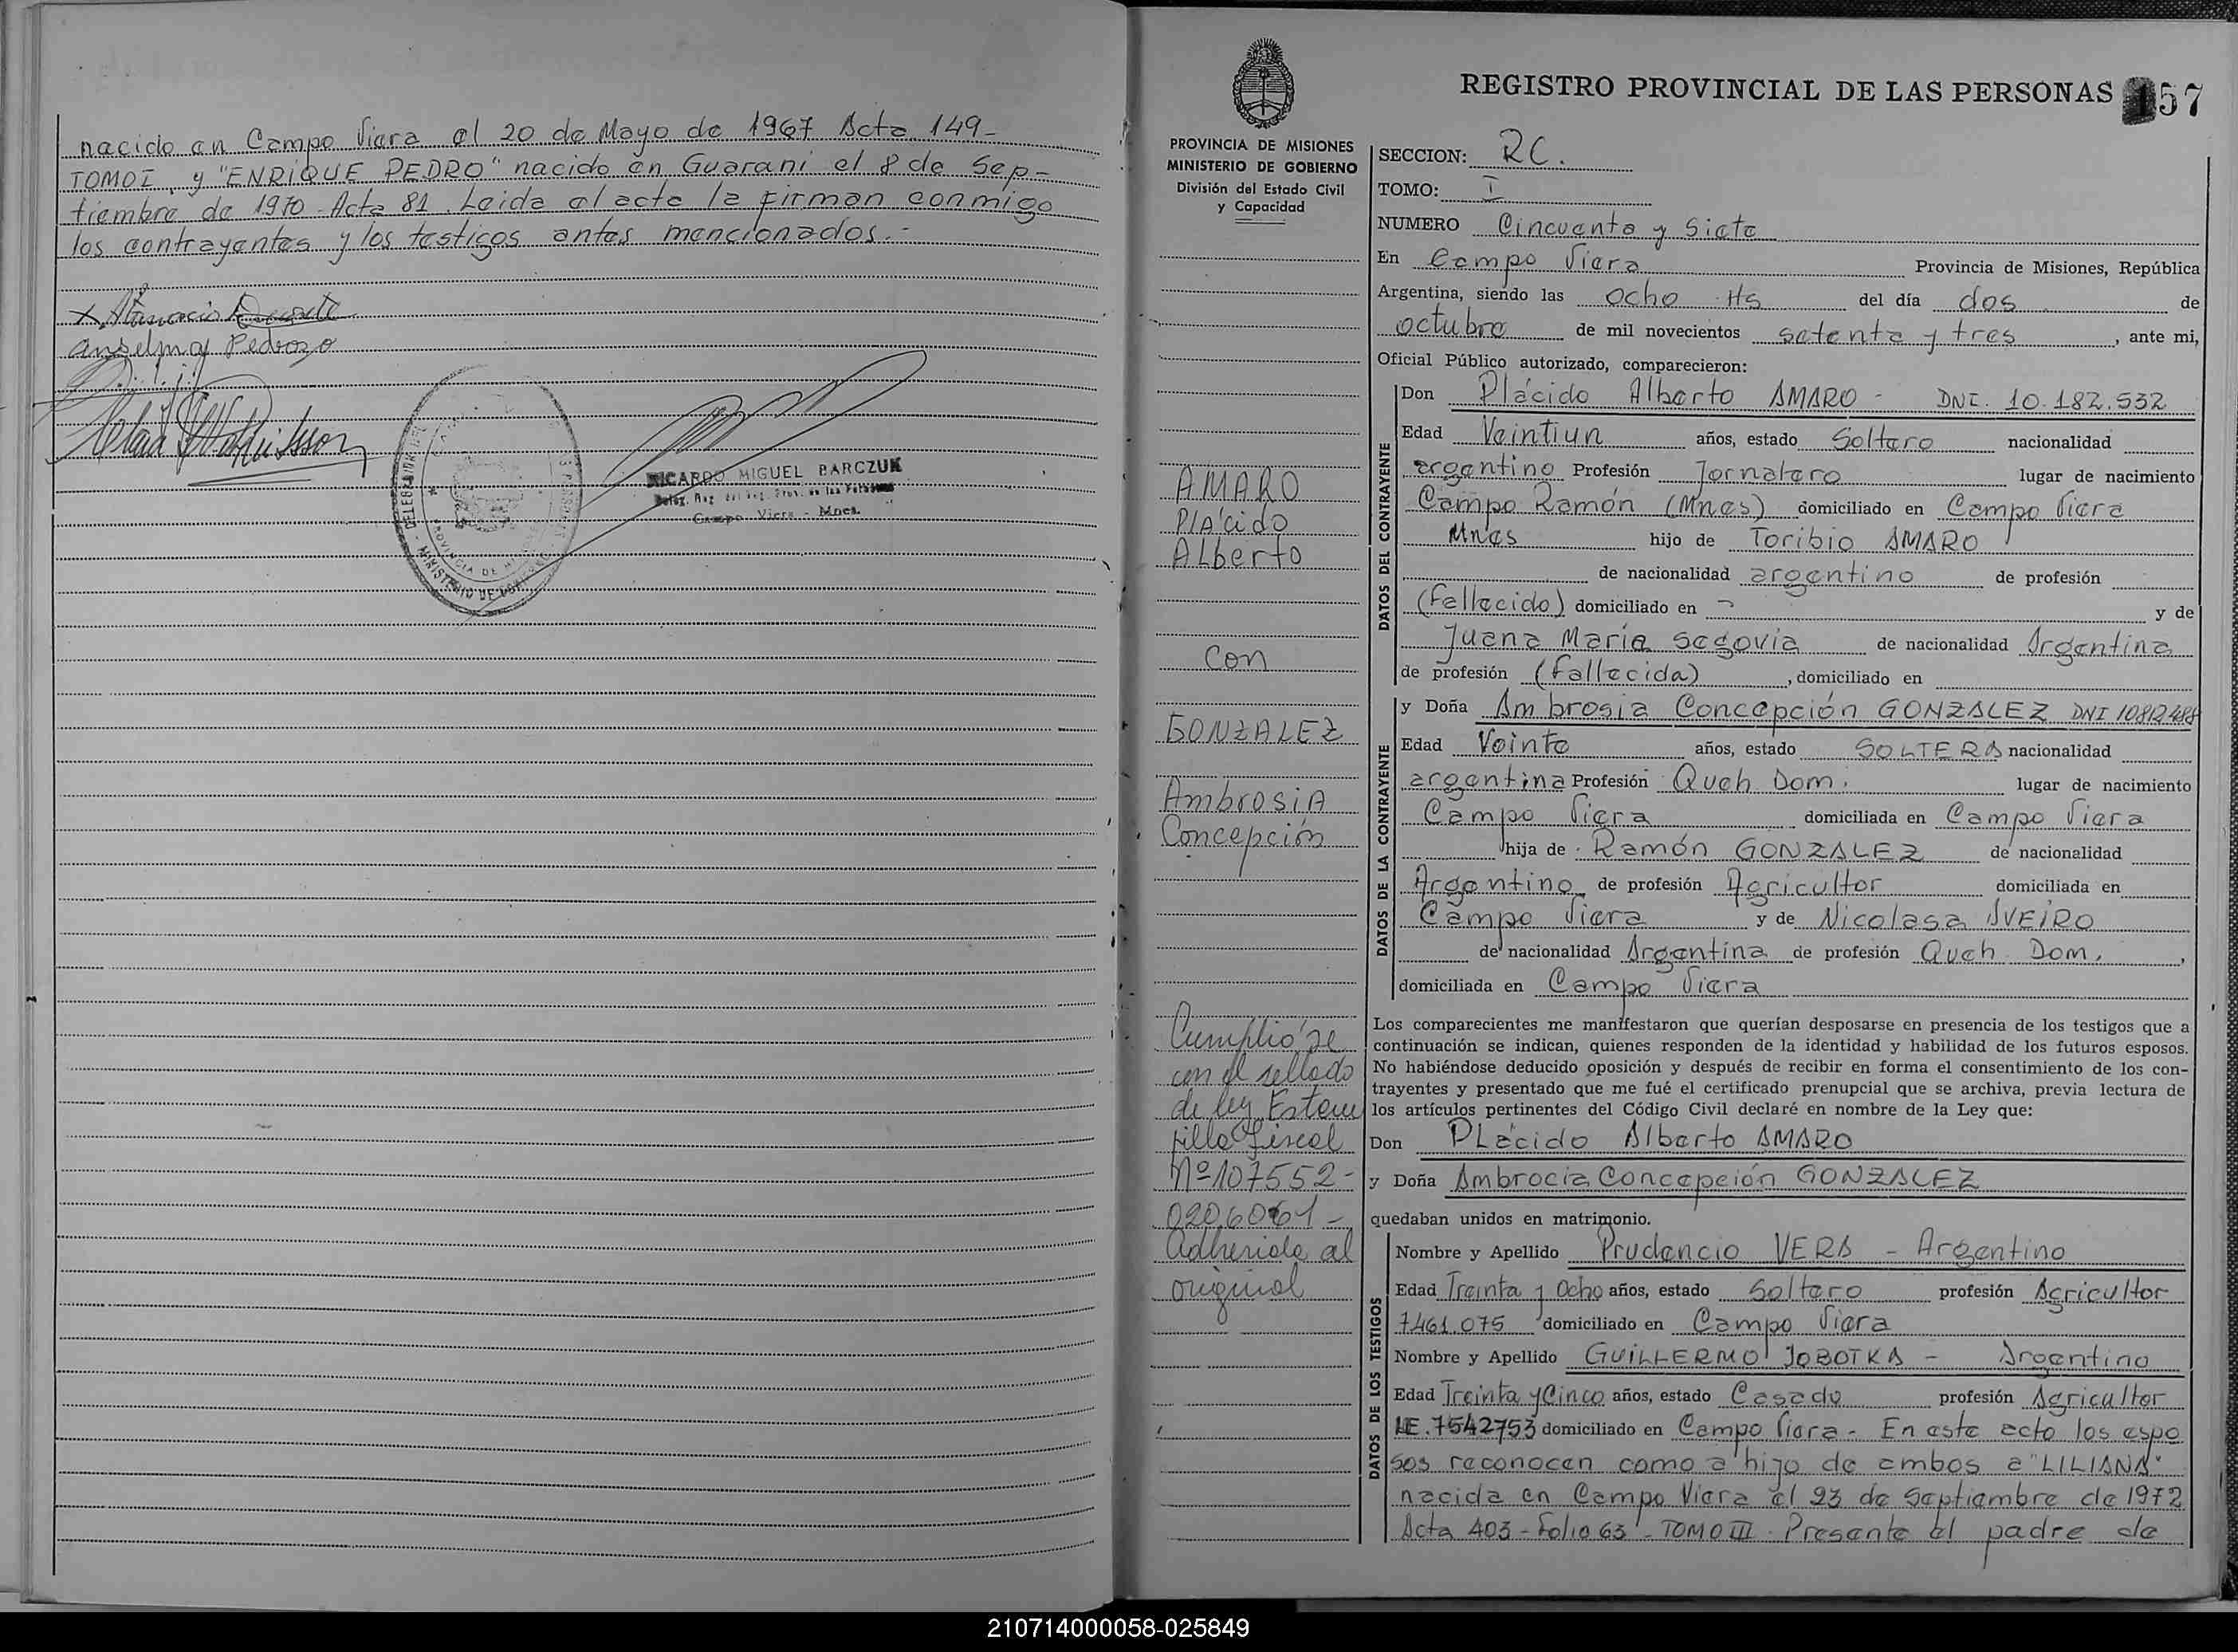 nacido en Campo Viera el 20 de Mayo de 1967 Acta 149-
TOMO I, y "ENRIQUE PEDRO" nacido en Guarani el 8 de Sep-
tiembre de 1970 - Acta 81. Leida el acta la firman conmigo
los contrayentes y los testigos antes mencionados.-
Anselma Pedrozo
RICARDO MIGUEL BARCZUK
Campo Viera - Mnes.
REGISTRO PROVINCIAL DE LAS PERSONAS 157
PROVINCIA DE MISIONES
MINISTERIO DE GOBIERNO
División del Estado Civil
y Capacidad
AMARO
Plácido
Alberto
con
GONZALEZ
Ambrosia
Concepción
Cumplióse
con el sellado
de ley Estam
pilla fiscal
Nº 107552-
Adherida al
original
SECCION: RC.
TOMO: I
NUMERO Cincuenta y Siete
En Campo Viera Provincia de Misiones, República
Argentina, siendo las ocho Hs del día dos de
octubre de mil novecientos setenta y tres, ante mi,
Oficial Público autorizado, comparecieron:
DATOS DEL CONTRAYENTE
Don Plácido Alberto AMARO - DNI. 10.182.532
Edad Veintiun años, estado Soltero nacionalidad
argentino Profesión Jornalero lugar de nacimiento
Campo Ramón (Mnes) domiciliado en Campo Viera
Mnes hijo de Toribio AMARO
de nacionalidad argentino de profesión
(fallecido) domiciliado en - y de
Juana Maria Segovia de nacionalidad Argentina
de profesión (fallecida), domiciliado en
DATOS DE LA CONTRAYENTE
y Doña Ambrosia Concepción GONZALEZ DNI 10812488
Edad Veinte años, estado SOLTERA nacionalidad
argentina Profesión Queh. Dom. lugar de nacimiento
Campo Viera domiciliada en Campo Viera
hija de Ramón GONZALEZ de nacionalidad
Argentino de profesión Agricultor domiciliada en
Campo Viera y de Nicolasa AVEIRO
de nacionalidad Argentina de profesión Queh. Dom.,
domiciliada en Campo Viera
Los comparecientes me manifestaron que querían desposarse en presencia de los testigos que a
continuación se indican, quienes responden de la identidad y habilidad de los futuros esposos.
No habiéndose deducido oposición y después de recibir en forma el consentimiento de los con-
trayentes y presentado que me fué el certificado prenupcial que se archiva, previa lectura de
los artículos pertinentes del Código Civil declaré en nombre de la Ley que:
Don PLácido Alberto AMARO
y Doña Ambrocia Concepción GONZALEZ
quedaban unidos en matrimonio.
DATOS DE LOS TESTIGOS
Nombre y Apellido Prudencio VERA - Argentino
Edad Treinta y Ocho años, estado Soltero profesión Agricultor
7461.075 domiciliado en Campo Viera
Nombre y Apellido GUILLERMO JOBOTKA - Argentino
Edad Treinta y Cinco años, estado Casado profesión Agricultor
LE. 7542753 domiciliado en Campo Viera - En este acto los espo
sos reconocen como a hijo de ambos a "LILIANA"
nacida en Campo Viera el 23 de Septiembre de 1972
Acta 403 - Folio 63 - TOMO III. Presente el padre de
210714000058-025849